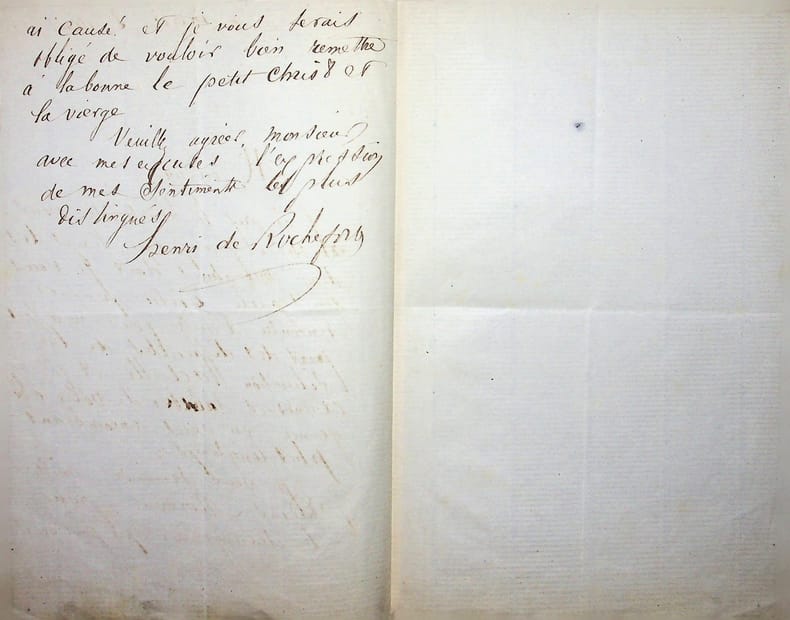 ai causé et je vous serais
obligé de vouloir bien remettre
à la bonne le petit Christ et
la vierge
Veuillez agréer, monsieur
avec mes excuses l'expression
de mes sentiments les plus
distingués
Henri de Rochefort